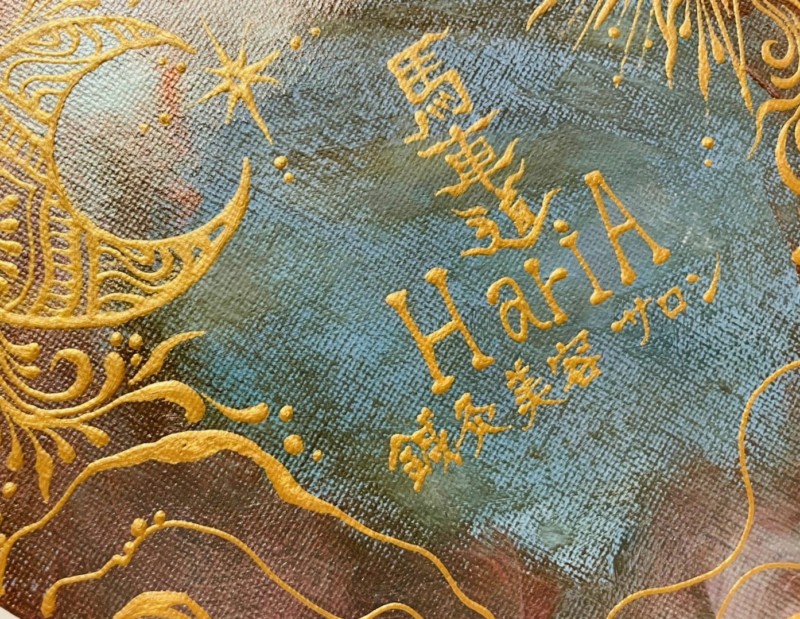 馬車道
HariA
鍼灸美容サロン